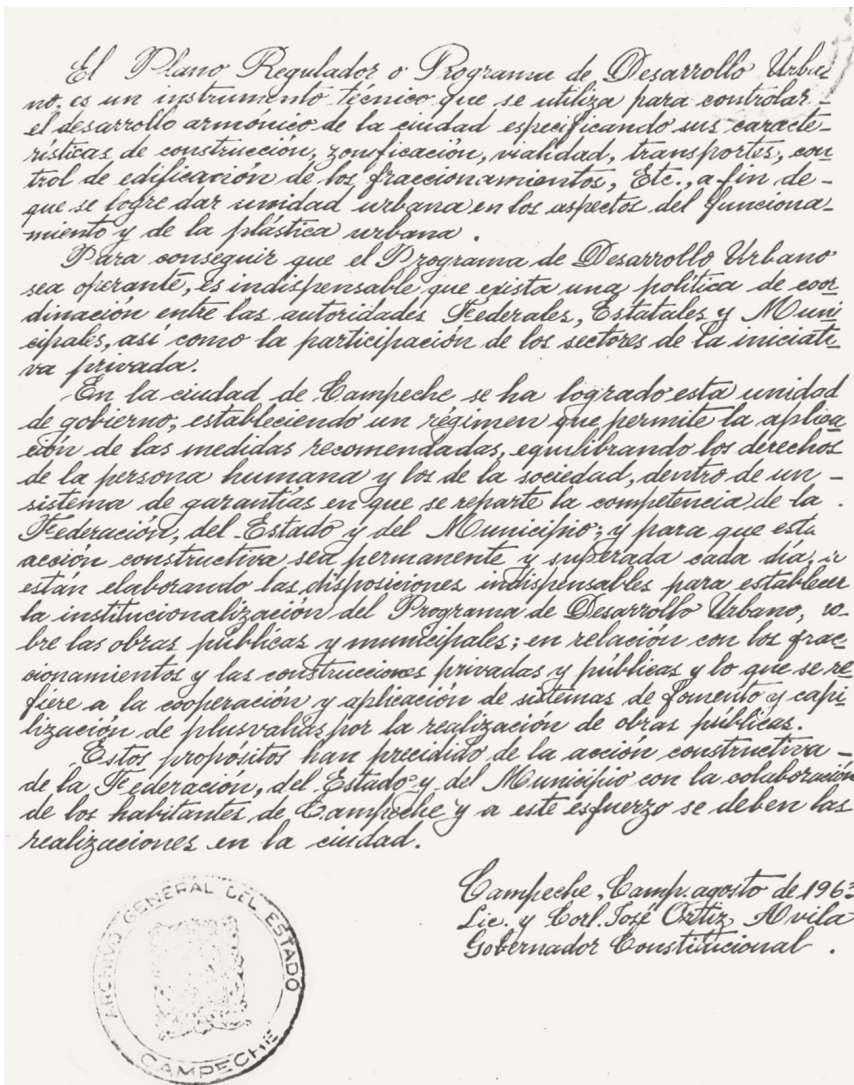 El Plano Regulador o Programa de Desarrollo Urba
no, es un instrumento técnico que se utiliza para controlar -
el desarrollo armónico de la ciudad especificando sus caracte-
rísticas de construcción, zonificación, vialidad, transportes, con
trol de edificación de los fraccionamientos, Etc., a fin de -
que se logre dar unidad urbana en los aspectos del funciona-
miento y de la plástica urbana.
Para conseguir que el Programa de Desarrollo Urbano
sea operante, es indispensable que exista una política de coor
dinación entre las autoridades Federales, Estatales y Muni
cipales, así como la participación de los sectores de la iniciati-
va privada.
En la ciudad de Campeche se ha logrado esta unidad
de gobierno, estableciendo un régimen que permite la aplica
ción de las medidas recomendadas, equilibrando los derechos
de la persona humana y los de la sociedad, dentro de un -
sistema de garantías en que se reparte la competencia de la
Federación, del Estado y del Municipio; y para que esta
acción constructiva sea permanente y superada cada día,
están elaborando las disposiciones indispensables para establecer
la institucionalización del Programa de Desarrollo Urbano, so-
bre las obras públicas y municipales; en relación con los frac-
cionamientos y las construcciones privadas y públicas y lo que se re
fiere a la cooperación y aplicación de sistemas de fomento y capi
lización de plusvalías por la realización de obras públicas.
Estos propósitos han precidido de la acción constructiva -
de la Federación, del Estado y del Municipio con la colaboración
de los habitantes de Campeche y a este esfuerzo se deben las
realizaciones en la ciudad.
Campeche, Camp. agosto de 1963
Lic. y Corl. José Ortiz Avila
Gobernador Constitucional.
ARCHIVO GENERAL DEL ESTADO
CAMPECHE